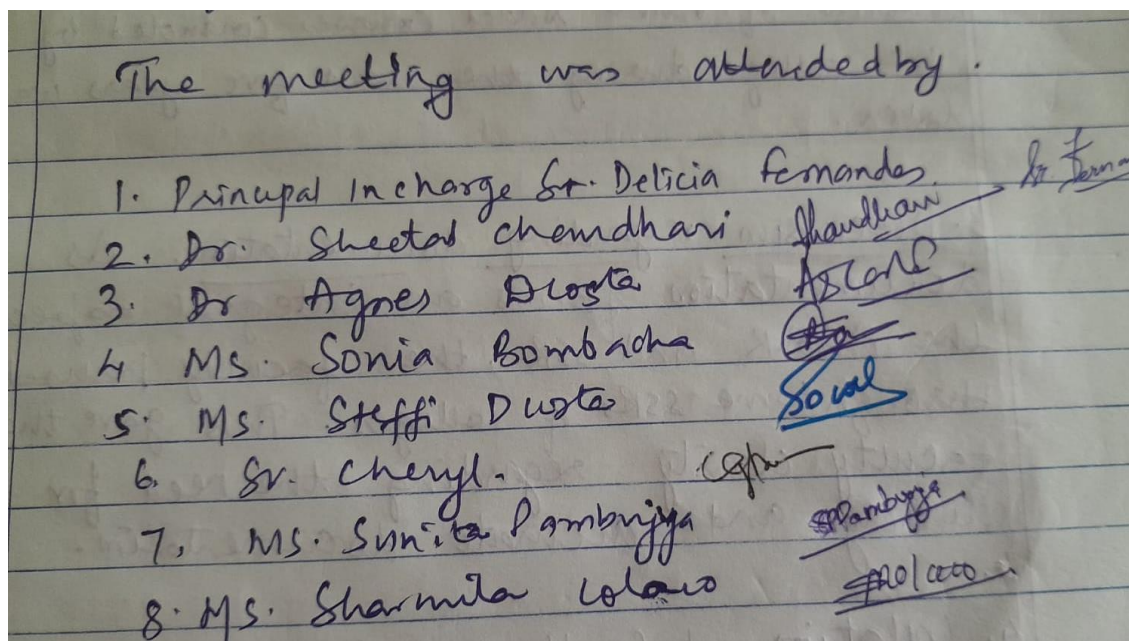 The meeting was attended by.
1. Principal Incharge Sr. Delicia Fernandes.
2. Dr. Sheetal Chemdhari
3. Dr Agnes Dcosta
4 Ms. Sonia Bombacha
5. Ms. Steffi Dcosta
6. Sr. Cheryl.
7, Ms. Sunita Pambujya SPPambujya
8. Ms. Sharmila Colaco